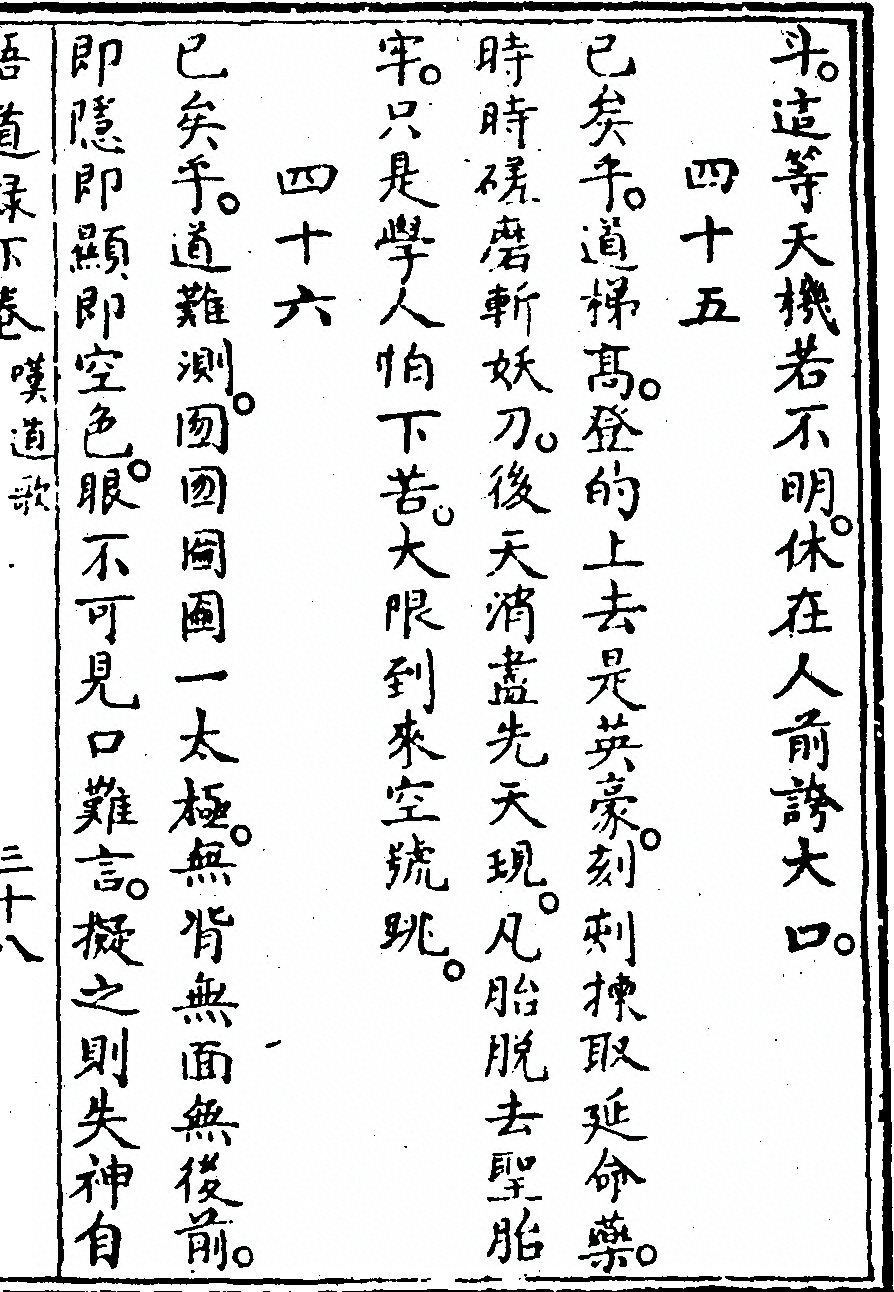 斗。這等天機若不明。休在人前誇大口。
四十五
已矣乎。道梯高。登的上去是英豪。刻刻揀取延命藥。
時時磋磨斬妖刀。後天消盡先天現。凡胎脫去聖胎
牢。只是學人怕下苦。大限到來空號跳。
四十六
已矣乎。道難測。囫囫圇圇一太極。無背無面無後前。
即隱即顯即空色。眼不可見口難言。擬之則失神自
悟道錄下卷 嘆道歌 三十八